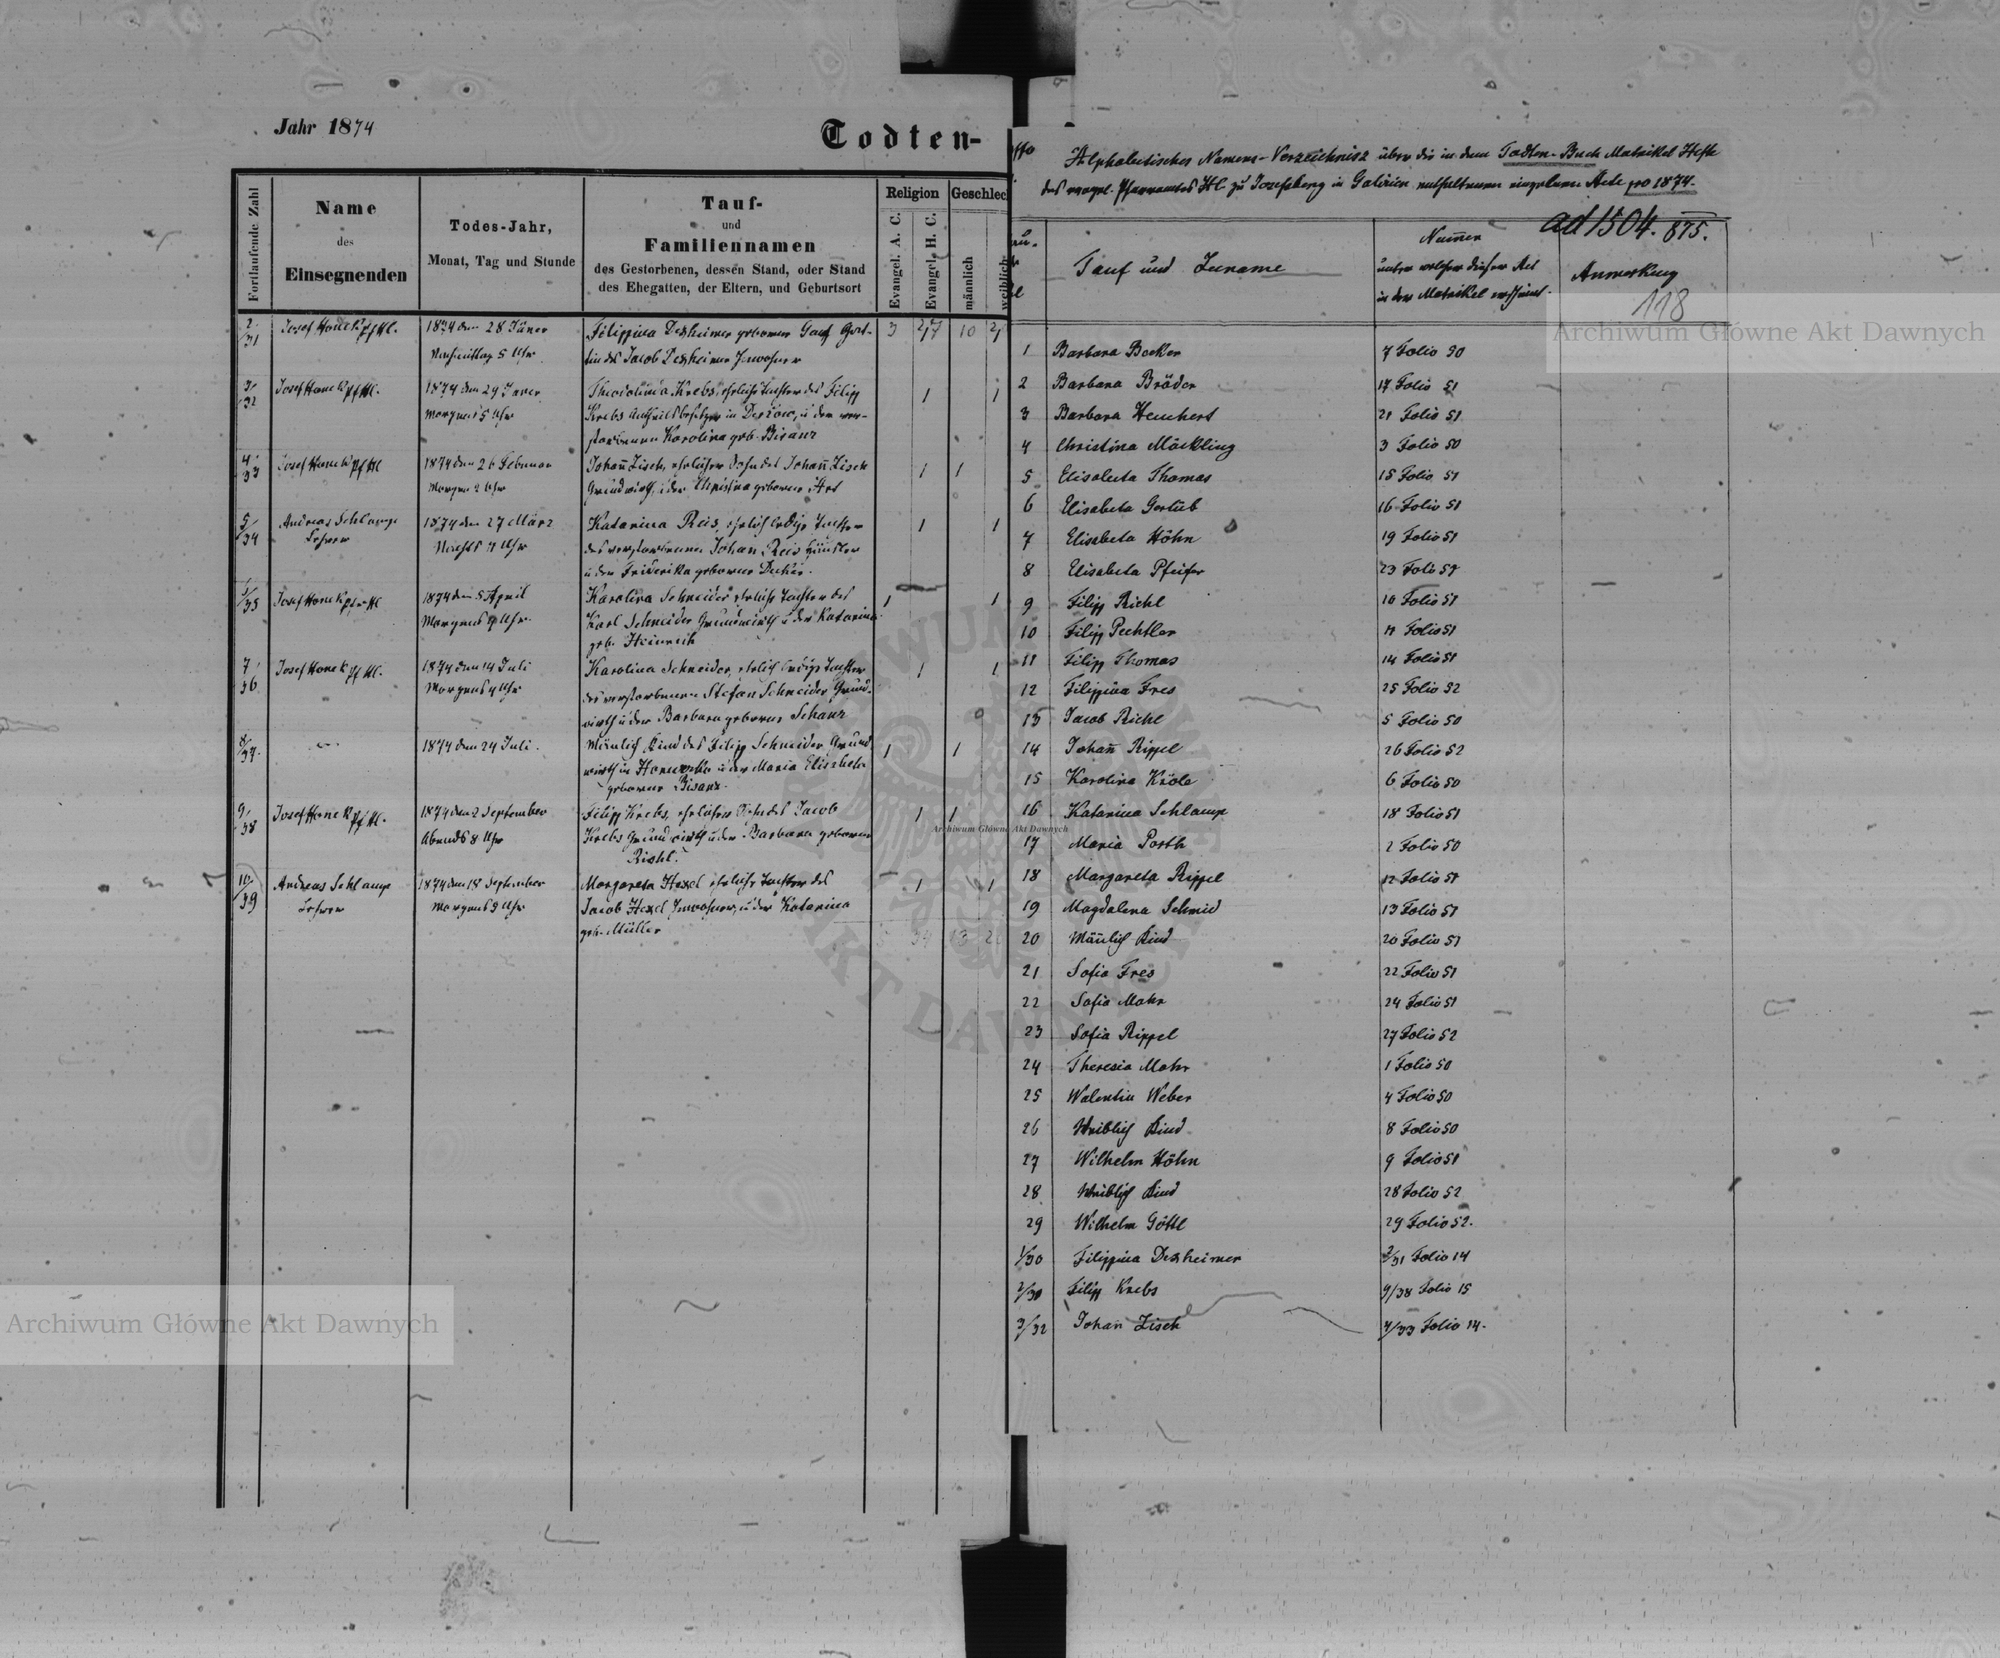 Jahr 1874
Todten-
Fortlaufende Zahl
Name
des
Einsegnenden
Todes-Jahr,
Monat, Tag und Stunde
Tauf-
und
Familiennamen
des Gestorbenen, dessen Stand, oder Stand
des Ehegatten, der Eltern, und Geburtsort
Religion
Evangel. A. C.
Evangel. H. C.
Geschlec
männlich
weiblich
2/31 Josef Honek Pf Hl. 1874 den 28 Jäner Filippina Dexheimer geborene Gat-
Nachmittag 5 Uhr tin des Jacob Dexheimer Inwohner
3/32 Josef Honek Pf Hl. 1874 den 29 Jäner Theodolinda Krebs, eheliche Tochter des Filipp 1 1
Morgens 5 Uhr Krebs Antheilsbesitzer in u der ver-
storbenen Karolina geb. Bisanz
4/33 Josef Honek Pf Hl 1874 den 26 Februar Johañ Zisch, ehelicher Sohn des Johañ Zisch 1 1
Morgens 2 Uhr Grundwirth, u der Christina geborene
5/34 Andreas Schlampp 1874 den 27 März Katarina Reis, ehelich ledige Tochter 1 1
Lehrer Nachts 11 Uhr des verstorbenen Johan Reis
u der Friderika geborene Decker.
6/35 Josef Honek 1874 den 5 April Karolina Schneider eheliche Tochter des 1 1
Morgens Uhr. Karl Schneider Grundwirth u der Katarina
geb. Heinreih
7/36 Josef Honek Pf Hl. 1874 den 14 Juli Karolina Schneider, ehelich ledige Tochter 1 1
Morgens 4 Uhr des verstorbenen Stefan Schneider Grund-
wirth u der Barbara geborene Schanz
8/37 1874 den 24 Juli. Mänlich Kind des Filipp Schneider Grund 1 1
wirth in u der Maria Elisabeta
geborene Bisanz.
9/38 Josef Honek Pf Hl. 1874 den 2 September Filipp Krebs, ehelicher Sohn des Jacob 1 1
Abends 8 Uhr Krebs Grundwirth u der Barbara geborene
Richl.
10/39 Andreas Schlampp 1874 den 18 September Margareta Hexel eheliche Tochter des 1 1
Lehrer Morgens 9 Uhr Jacob Hexel Inwohner, u der Katarina
geb. Müller
Alphabetisches Namens-Verzeichnisz über die in dem Todten-Buch Matrikel Hefte
des evangel. Pfarramtes Hl. zu Josefsberg in Galizien enthaltenen einzelnen Acte pro 1874.
ad 1504. 875.
Tauf und Zuname
Num̄er
unter welcher dieser Act
in der Matrikel erscheint.
Anmerkung
118
1 Barbara Becker 7 Folio 50
2 Barbara Bräder 17 Folio 51
3 Barbara Heuchert 21 Folio 51
4 Christina Möckling 3 Folio 50
5 Elisabeta Thomas 15 Folio 51
6 Elisabeta Gerlüb 16 Folio 51
7 Elisabeta Höhn 19 Folio 51
8 Elisabeta Pfeifer 23 Folio 51
9 Filipp Richl 10 Folio 51
10 Filipp Pechtler 11 Folio 51
11 Filipp Thomas 14 Folio 51
12 Filippina Fres 25 Folio 52
13 Jacob Richl 5 Folio 50
14 Johañ Rippel 26 Folio 52
15 Karolina Kröle 6 Folio 50
16 Katarina Schlampp 18 Folio 51
17 Maria Porth 2 Folio 50
18 Margareta Rippel 12 Folio 51
19 Magdalena Schmid 13 Folio 51
20 Mañlich Kind 20 Folio 51
21 Sofia Fres 22 Folio 51
22 Sofia Mohr 24 Folio 51
23 Sofia Rippel 27 Folio 52
24 Theresia Mohr 1 Folio 50
25 Walentin Weber 4 Folio 50
26 Weiblich Kind 8 Folio 50
27 Wilhelm Höhn 9 Folio 51
28 Weiblich Kind 28 Folio 52
29 Wilhelm Göttl 29 Folio 52.
1/30 Filippina Dexheimer 2/31 Folio 14
2/30 Filipp Krebs 9/38 Folio 15
3/32 Johan Zisch 4/33 Folio 14.
Archiwum Główne Akt Dawnych
Archiwum Główne Akt Dawnych
Archiwum Główne Akt Dawnych